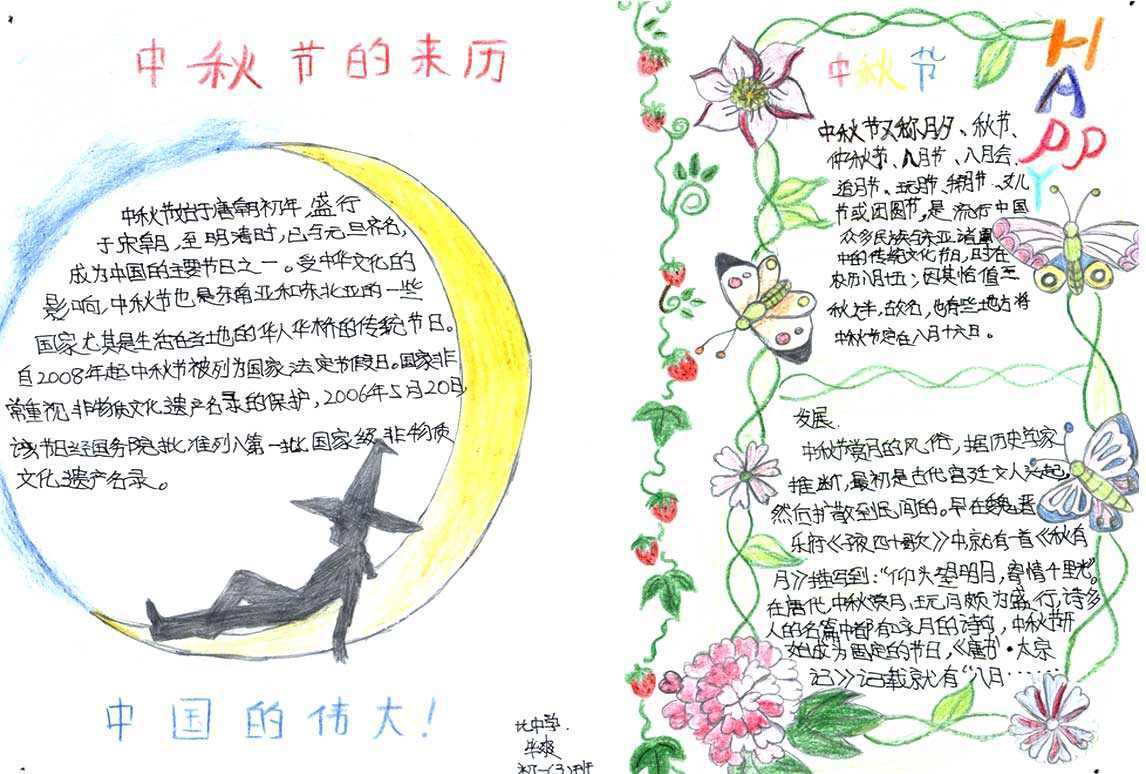 中秋节的来历
中秋节始于唐朝初年,盛行
于宋朝,至明清时,已与元旦齐名,
成为中国的主要节日之一。受中华文化的
影响,中秋节也是东南亚和东北亚的一些
国家尤其是生活在当地的华人华侨的传统节日。
自2008年起中秋节被列为国家法定节假日。国家非
常重视非物质文化遗产名录的保护,2006年5月20日,
该节日经国务院批准列入第一批国家级非物质
文化遗产名录。
中国的伟大!
中学
初一(3)班
中秋节
HAPPY
中秋节又称月夕、秋节、
仲秋节、八月节、八月会、
追月节、玩月节、拜月节、女儿
节或团圆节,是流行中国
众多民族与东亚诸国
中的传统文化节日,时在
农历八月十五;因其恰值三
秋之半,故名,也有些地方将
中秋节定在八月十六日。
发展.
中秋节赏月的风俗,据历史学家
推断,最初是古代宫廷文人兴起,
然后扩散到民间的。早在魏晋
乐府《子夜四十歌》中就有一首《秋有
月》描写到:“仰头望明月,寄情千里光”。
在唐代,中秋赏月、玩月颇为盛行,诗多
人的名篇中都有咏月的诗句,中秋节开
始成为固定的节日,《唐书·太宗
记》记载就有“八月……